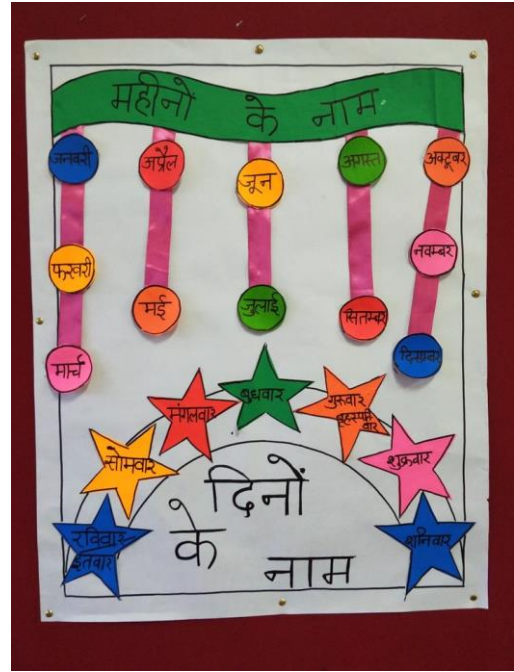 महीनों के नाम
जनवरी
फरवरी
मार्च
अप्रैल
मई
जून
जुलाई
अगस्त
सितम्बर
अक्टूबर
नवम्बर
दिसम्बर
रविवार
इतवार
सोमवार
मंगलवार
बुधवार
गुरुवार
बृहस्पति
वार
शुक्रवार
शनिवार
दिनों
के
नाम